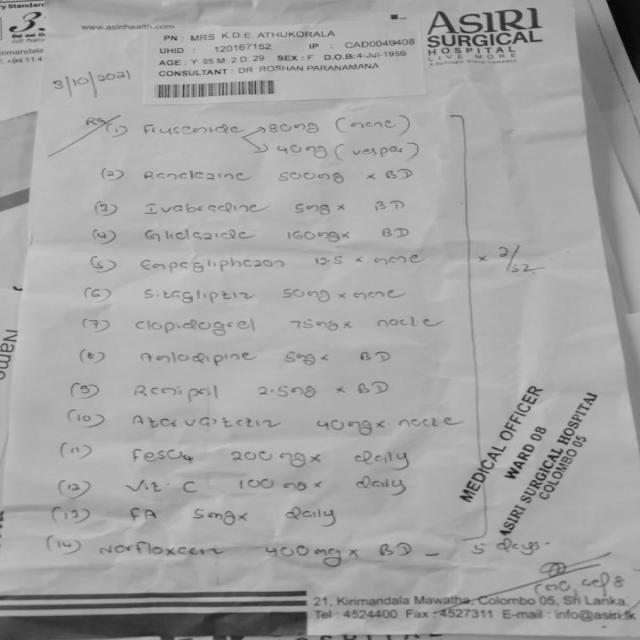 www.asirihealth.com
ASIRI
SURGICAL
HOSPITAL
LIVE MORE
PN : MRS K.D.E. ATHUKORALA
UHID : 120167152 IP : CAD0049408
AGE : Y 65 M: 2 D. 29 SEX : F D.O.B: 4-Jul-1956
CONSULTANT : DR ROSHAN PARANAMANA
3/10/2021
Rx (1) Frusemide 80mg (mane)
40mg (vesper)
(2) Ranolazine 500mg x BD
(3) Ivabradine 5mg x BD
(4) Gliclazide 160mg x BD
(5) Empagliphozin 12.5 x mane
(6) Sitagliptin 50mg x mane
(7) Clopidogrel 75mg x nocte
(8) Amlodipine 5mg x BD
(9) Ramipril 2.5mg x BD
(10) Atorvastatin 40mg x nocte
(11) FeSO4 200mg x daily
(12) Vit-C 100mg x daily
(13) FA 5mg x daily
(14) Norfloxacin 400mg x BD - 5 days
x 2/52
MEDICAL OFFICER
WARD 08
ASIRI SURGICAL HOSPITAL
COLOMBO 05
21, Kirimandala Mawatha, Colombo 05, Sri Lanka
Tel : 4524400 Fax : 4527311 E-mail : info@asiri.lk